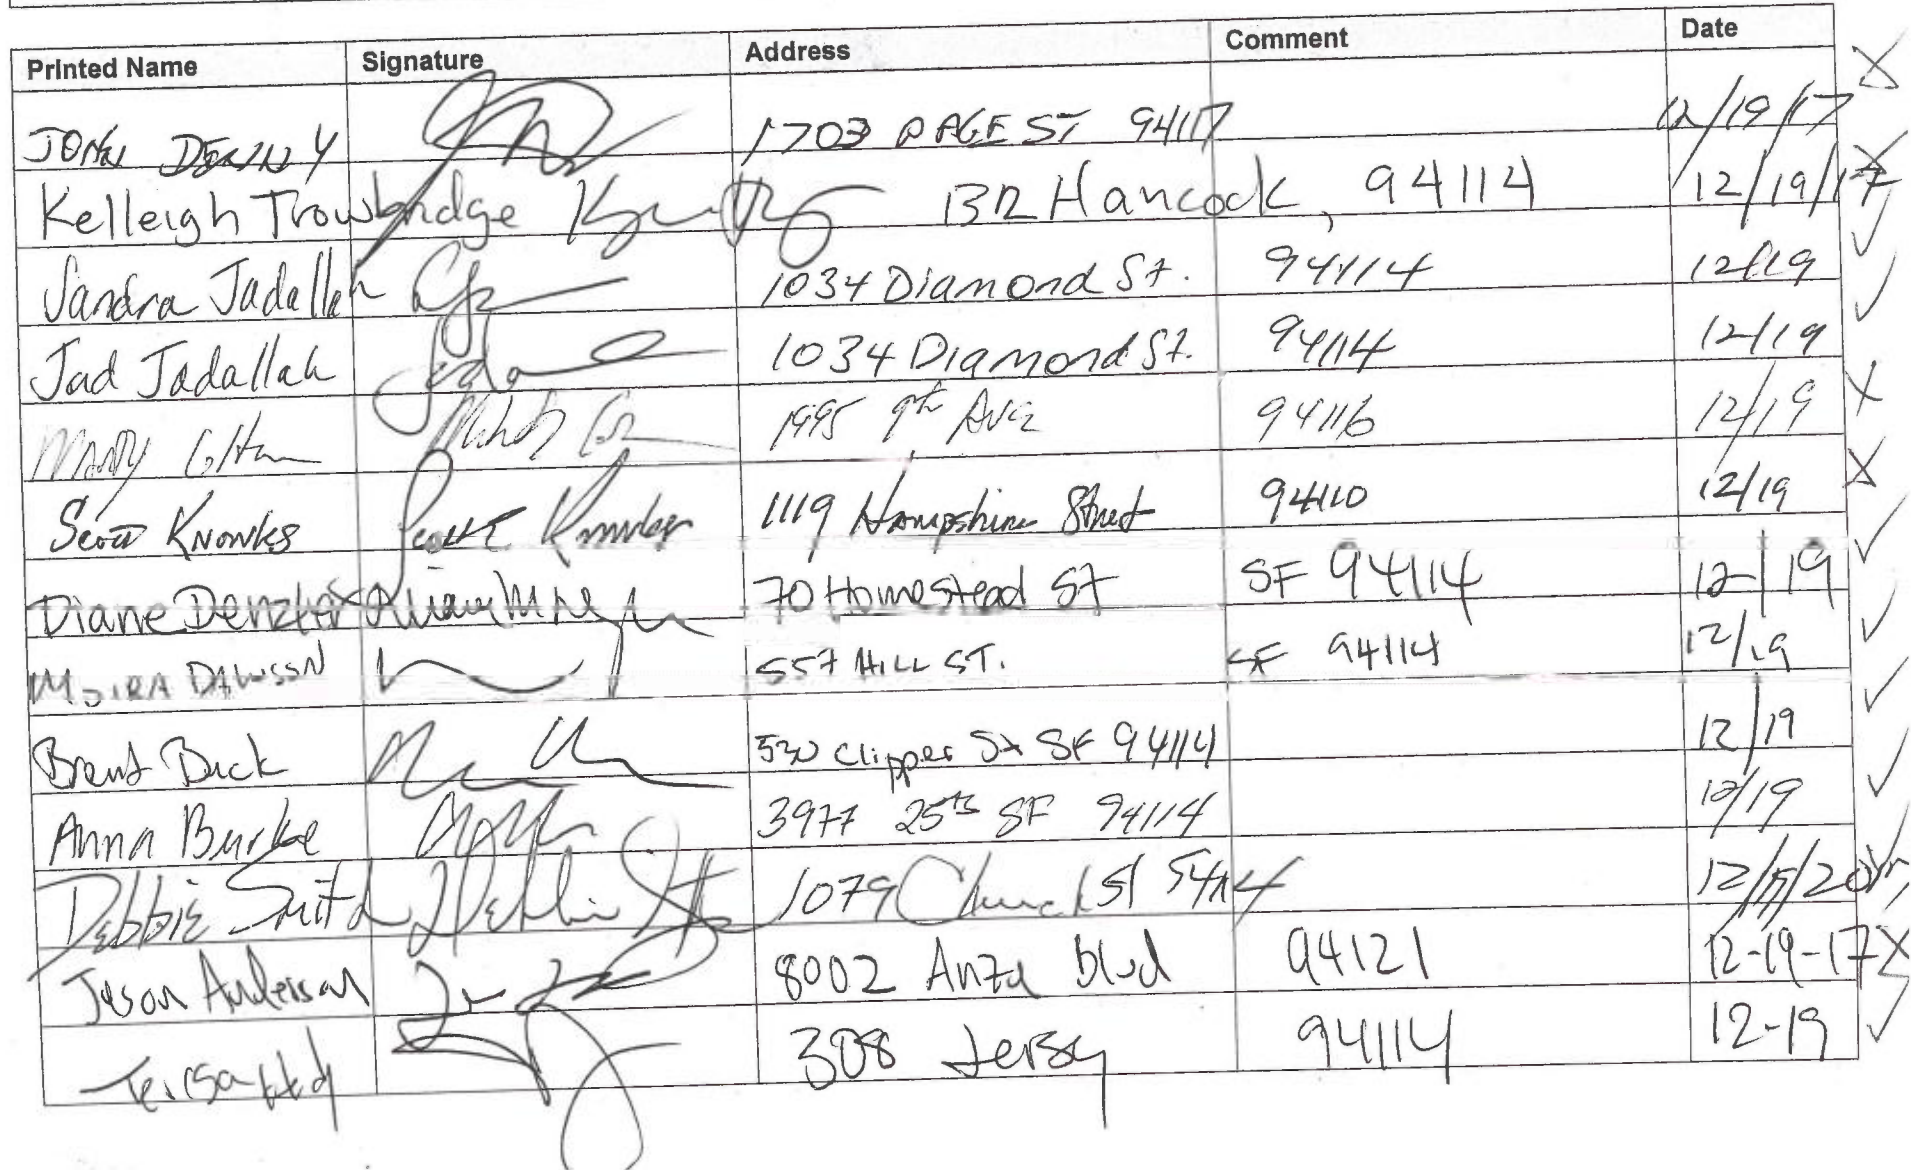 Printed Name Signature Address Comment Date
JOHN DENNY 1703 PAGE ST 94117 12/19/17
Kelleigh Trowbridge 132 Hancock, 94114 12/19/17
Sandra Jadallah 1034 Diamond St. 94114 12/19
Jad Jadallah 1034 Diamond St. 94114 12/19
1995 9th Ave 94116 12/19
Scott Knowles Scott Knowles 1119 Hampshire Street 94110 12/19
Diane Denzler 70 Homestead St SF 94114 12/19
MOIRA DAWSON 557 HILL ST. SF 94114 12/19
Brent Buck 530 Clipper St SF 94114 12/19
Anna Burke 3977 25th SF 94114 12/19
Debbie Smith Debbie 1079 Church St 12/19/2017
Jason Anderson 8002 Anza Blvd 94121 12-19-17
308 Jersy 94114 12-19